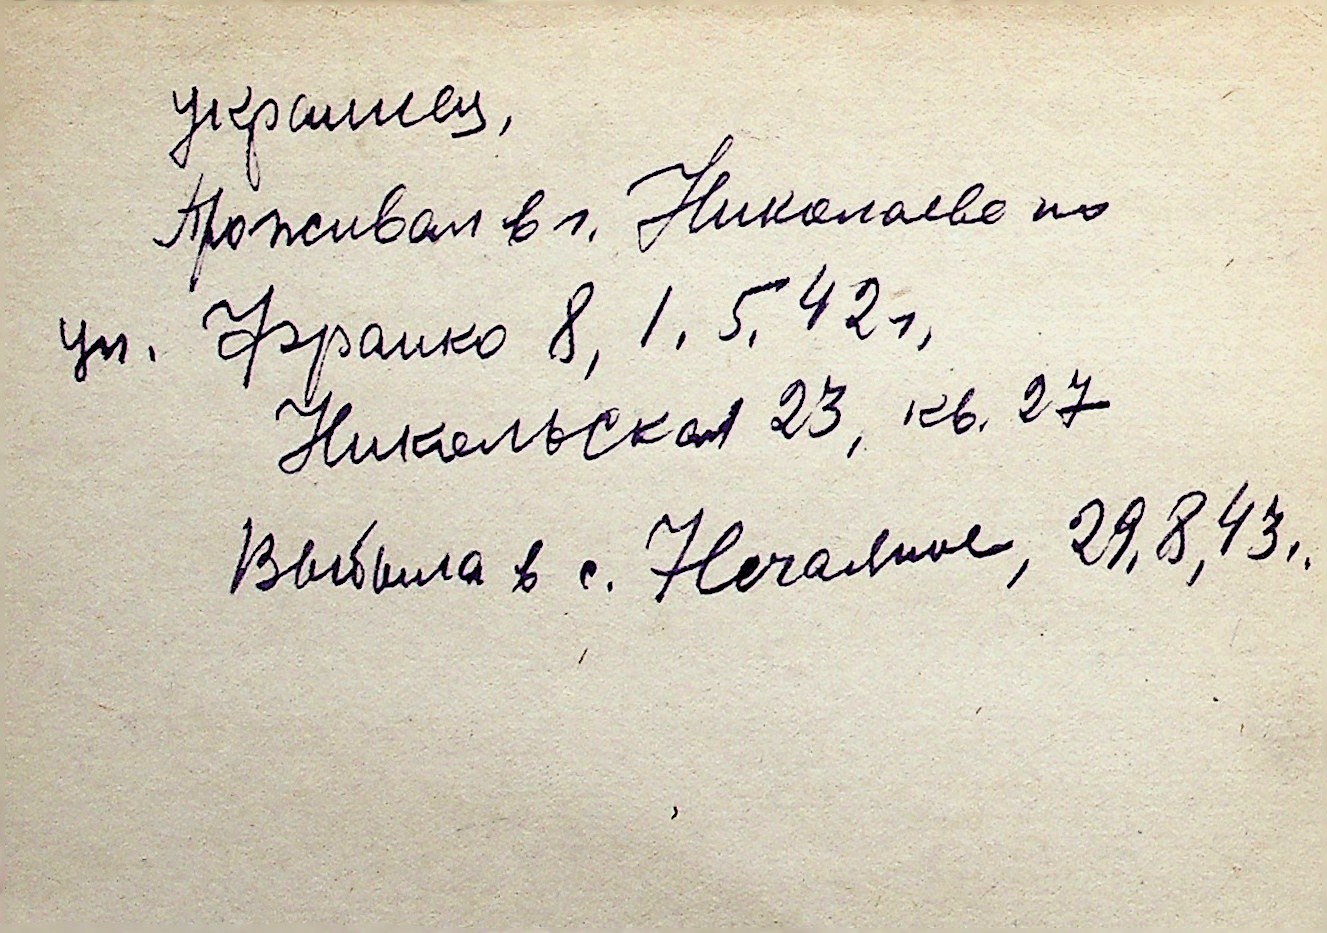 украинец,
Проживал в г. Николаеве по
ул. Франко 8, 1.5.42 г,
Никольская 23, кв. 27
Выбыла в с. Нечаяное, 29.8,43г.